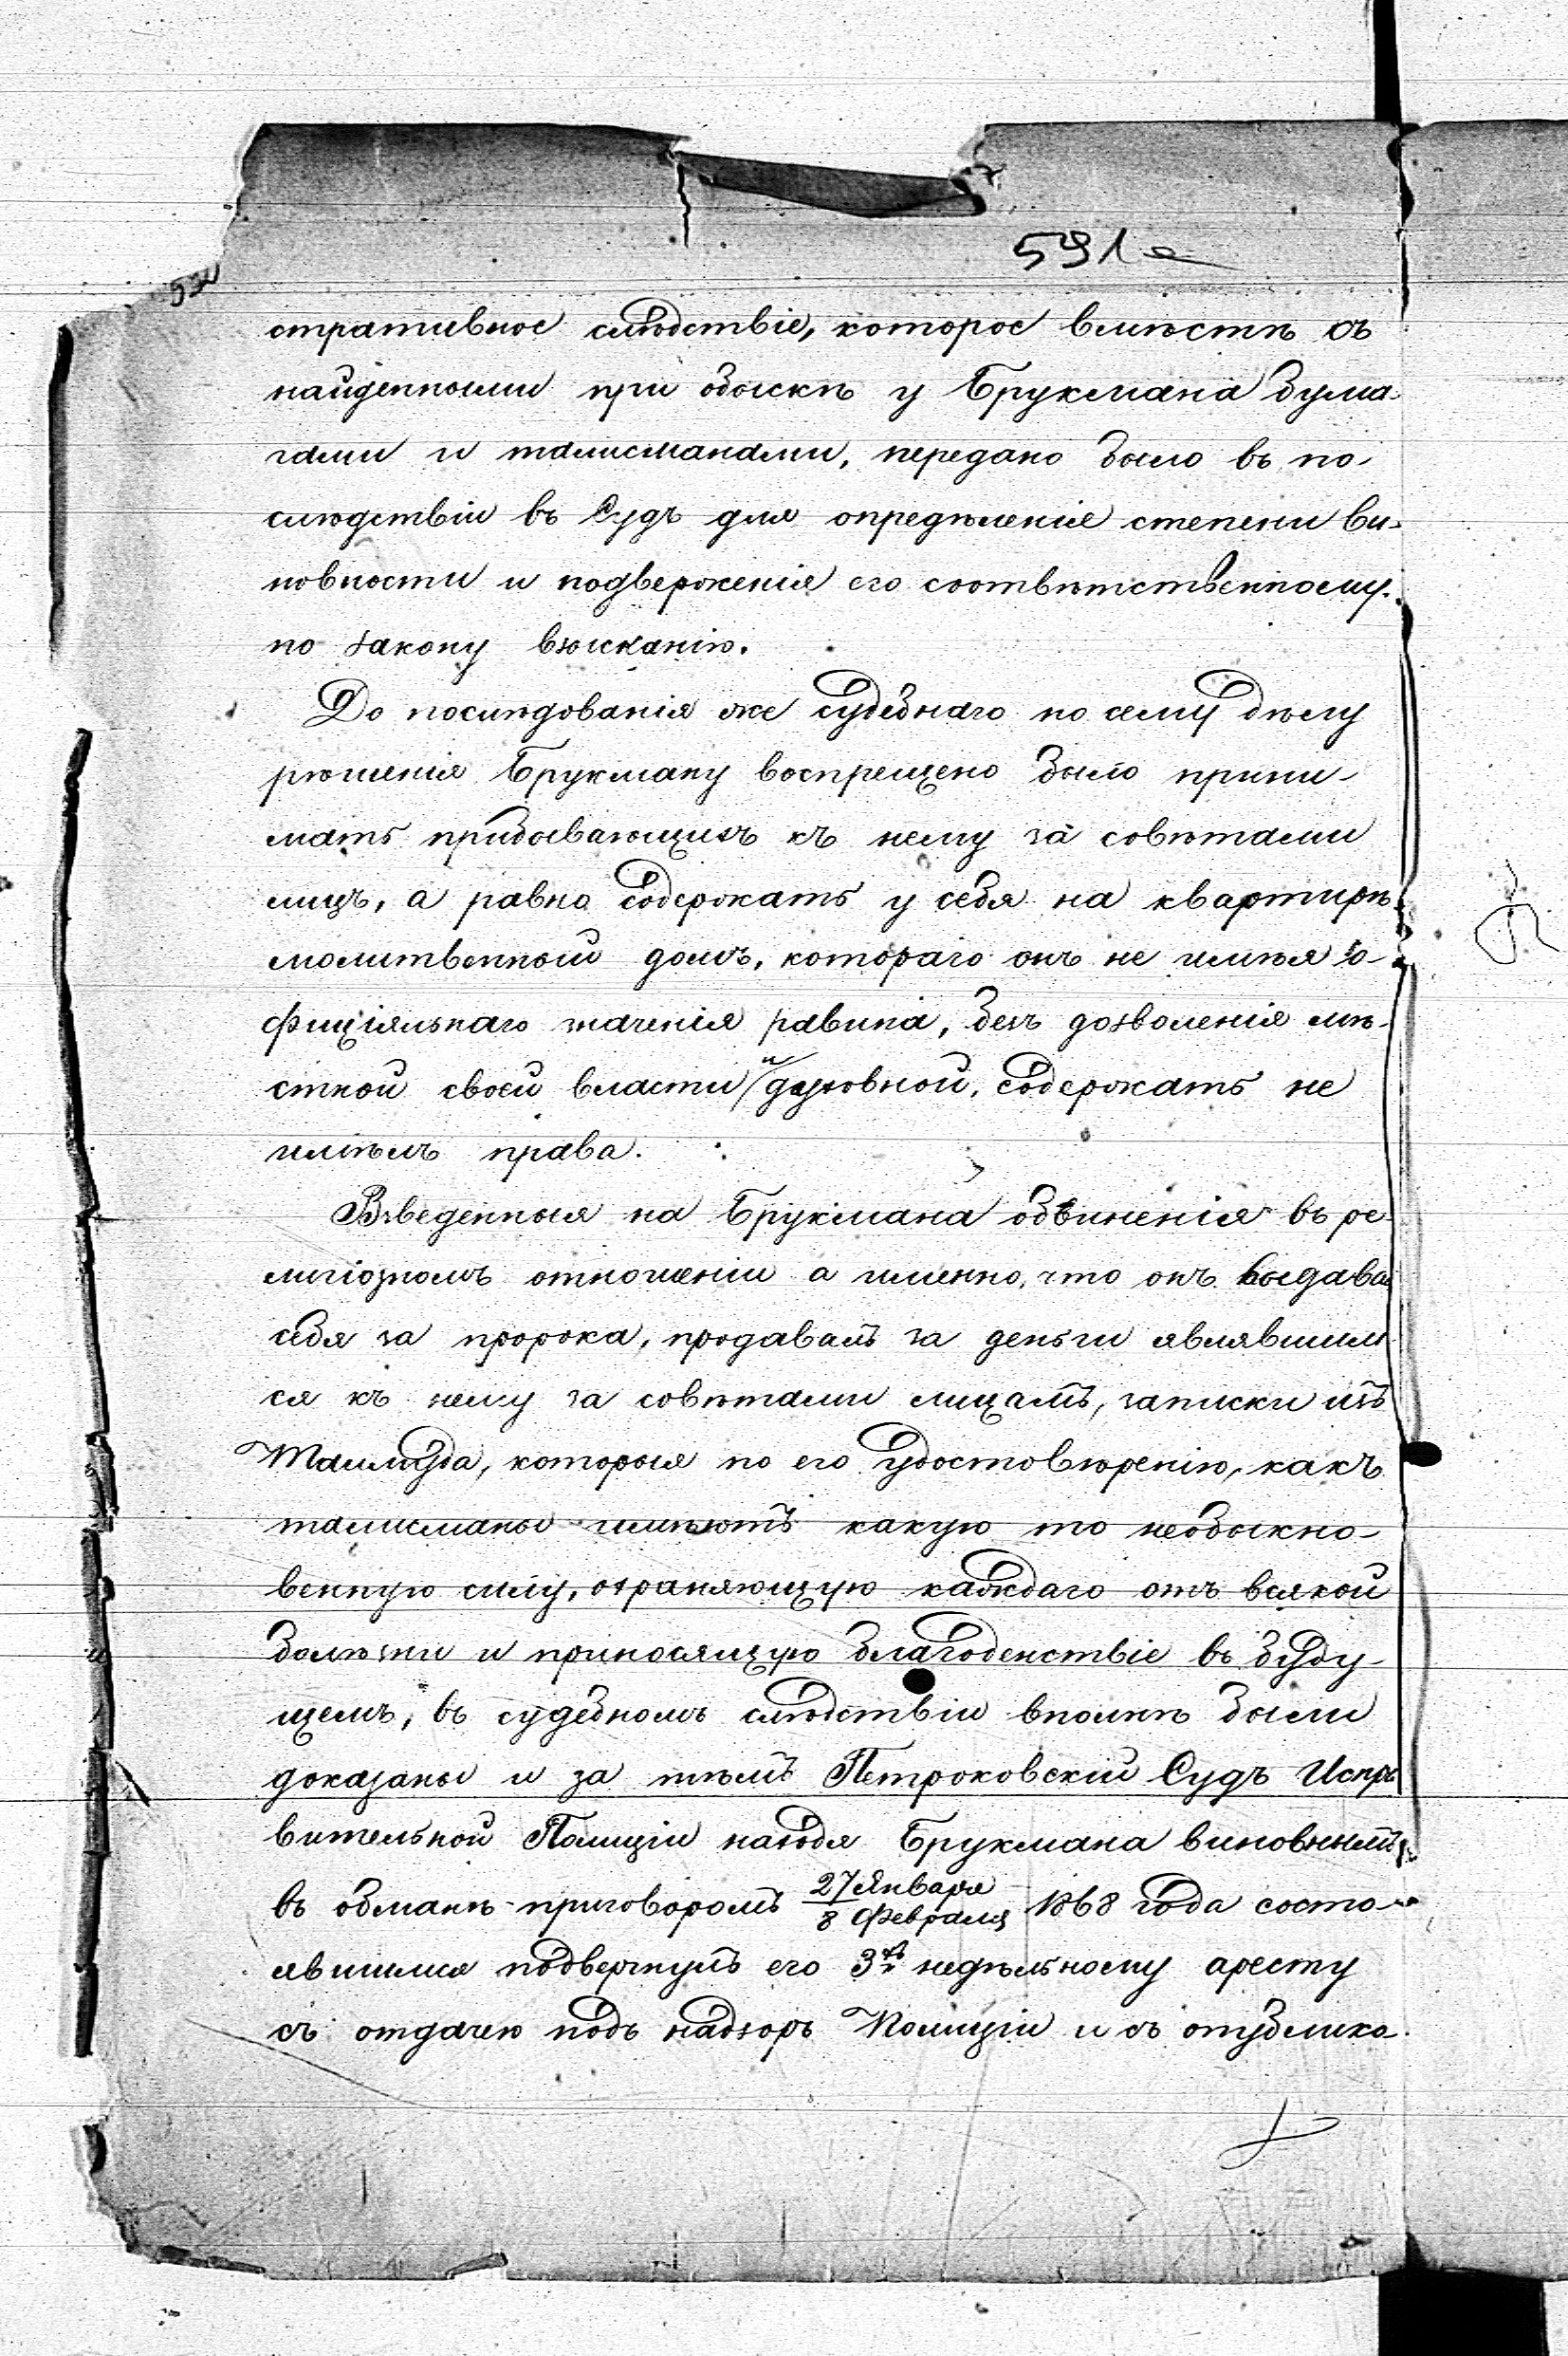 591 а
стративное слѣдствіе, которое вмѣстѣ съ
найденными при обыскѣ у Брукмана бума-
гами и талисманами, передано было въ по-
слѣдствіи въ Судъ для опредѣленія степени ви-
новности и подверженія его соотвѣтственному
по закону взысканію.
До послѣдованія же судебнаго по сему дѣлу
рѣшенія Брукману воспрещено было прини-
мать прибывающихъ къ нему за совѣтами
лицъ, а равно содержать у себя на квартирѣ
молитвенный домъ, котораго онъ не имѣя о-
фиціяльнаго значенія равина, безъ дозволенія мѣ-
стной своей власти и духовной, содержать не
имѣлъ права.
Взведенныя на Брукмана обвиненія въ ре-
лигіозномъ отношеніи а именно, что онъ выдава
себя за пророка, продавалъ за деньги являвшим
ся къ нему за совѣтами лицамъ, записки изъ
Талмуда, которыя по его удостовѣренію, какъ
талисманы имѣютъ какую то необыкно-
венную силу, охраняющую каждаго отъ всякой
болѣзни и приносящую благоденствіе въ буду-
щемъ, въ судебномъ слѣдствіи вполнѣ были
доказаны и за тѣмъ Петроковскій Судъ Испра
вительной Полиціи находя Брукмана виновнымъ
въ обманѣ приговоромъ 27 Января / 8 Февраля 1868 года состо-
явшимся подвергнулъ его 3хъ недѣльному аресту
съ отдачею подъ надзоръ Полиціи и съ опублико-